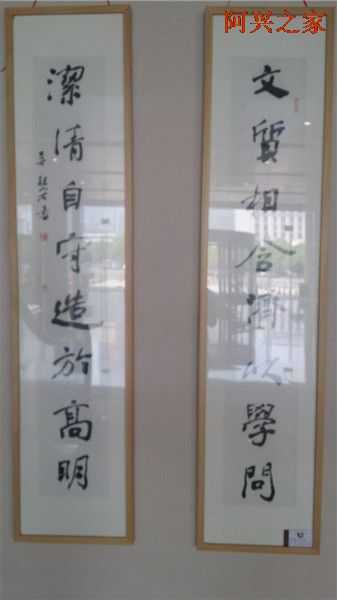 阿兴之家
文質相合以學問
潔清自守造於高明